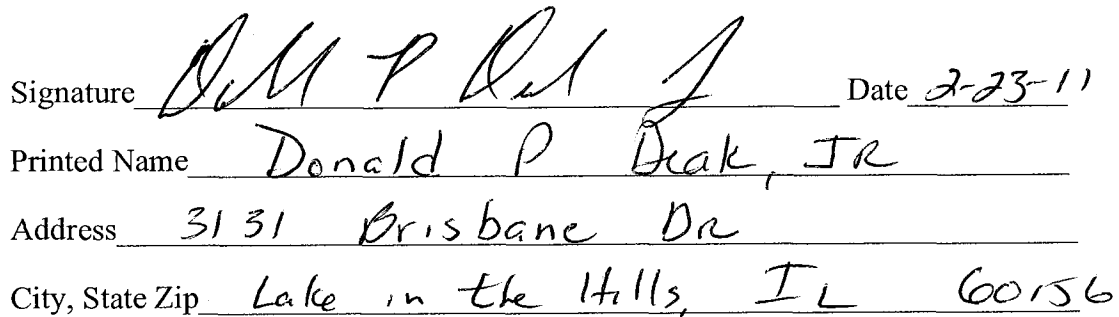 Signature Date 2-23-11
Printed Name Donald P Deak, JR
Address 3131 Brisbane DR
City, State Zip Lake in the Hills, IL 60156